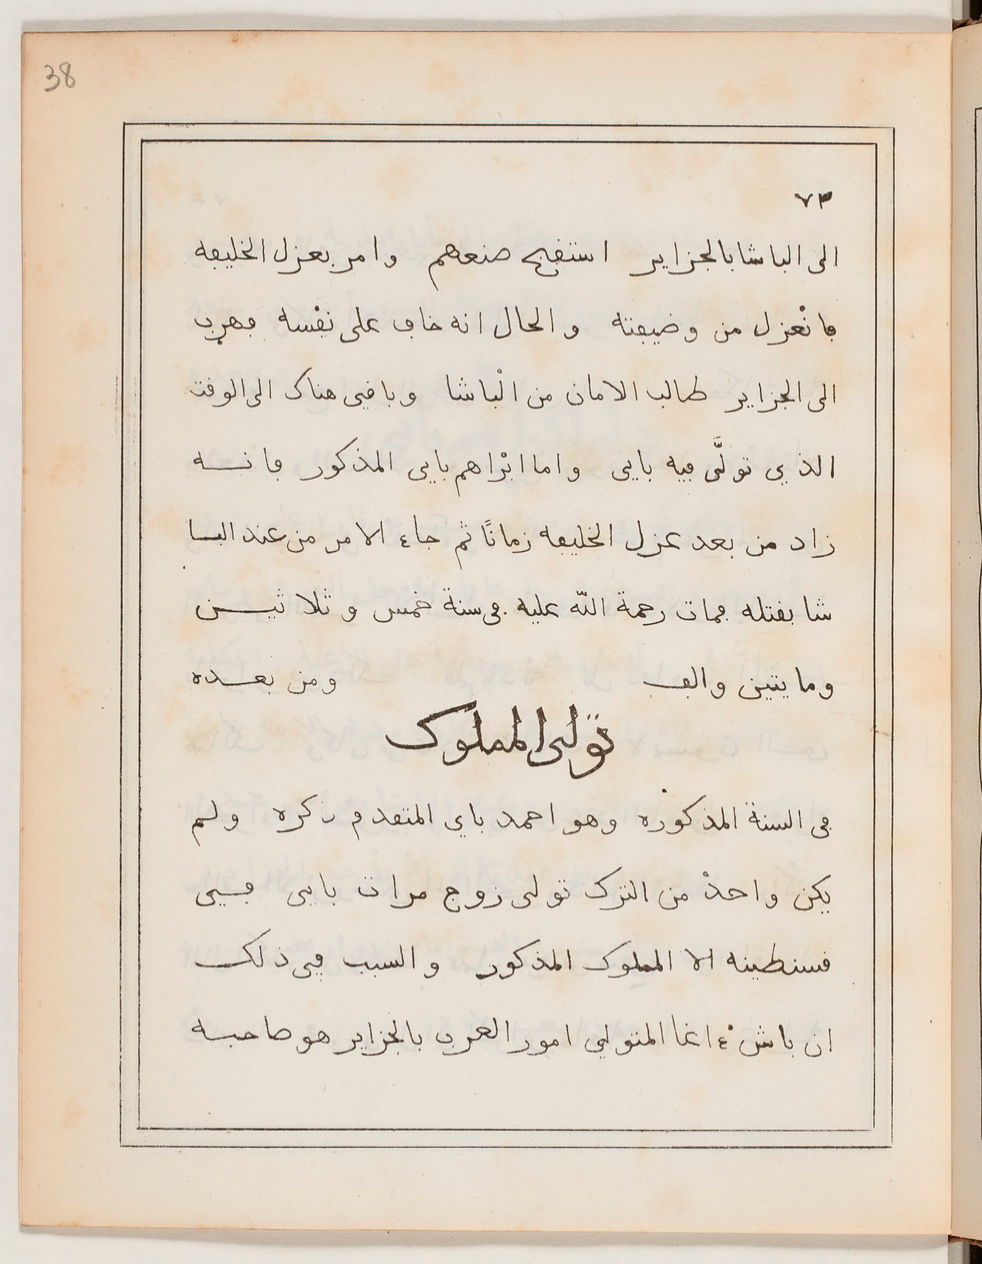 38
٧٣
الى الباشا بالجزاير استقبح صنعهم وامر بعزل الخليفه
فانْعزل من وضيفته والحال انه خاف على نفْسه فهرب
الى الجزاير طالب الامان من الْباشا وباقي هناك الى الوقت
الذي تولَّى فيه بايى واما ابْراهم بايى المذكور فانه
زاد من بعد عزل الخليفه زمانًا ثم جاء الامر من عند البا
شا بقتله فمات رحمة اللّه عليه في سنة خمس وثلاثين
ومايتين والف ومن بعده
تولى المملوك
في السنة المذكوره وهو احمد باي المتقدم ذكره ولم
يكن واحدْ من الترك تولى زوج مرات بايى في
قسنطينه الا المملوك المذكور والسبب في ذلك
ان باش ءاغا المتولي امور العرب بالجزاير هو صاحبه